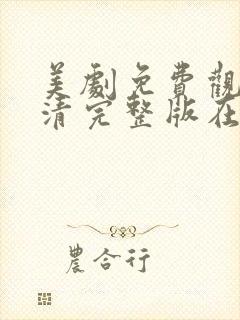 美劇免費觀
清完整版在
農合行